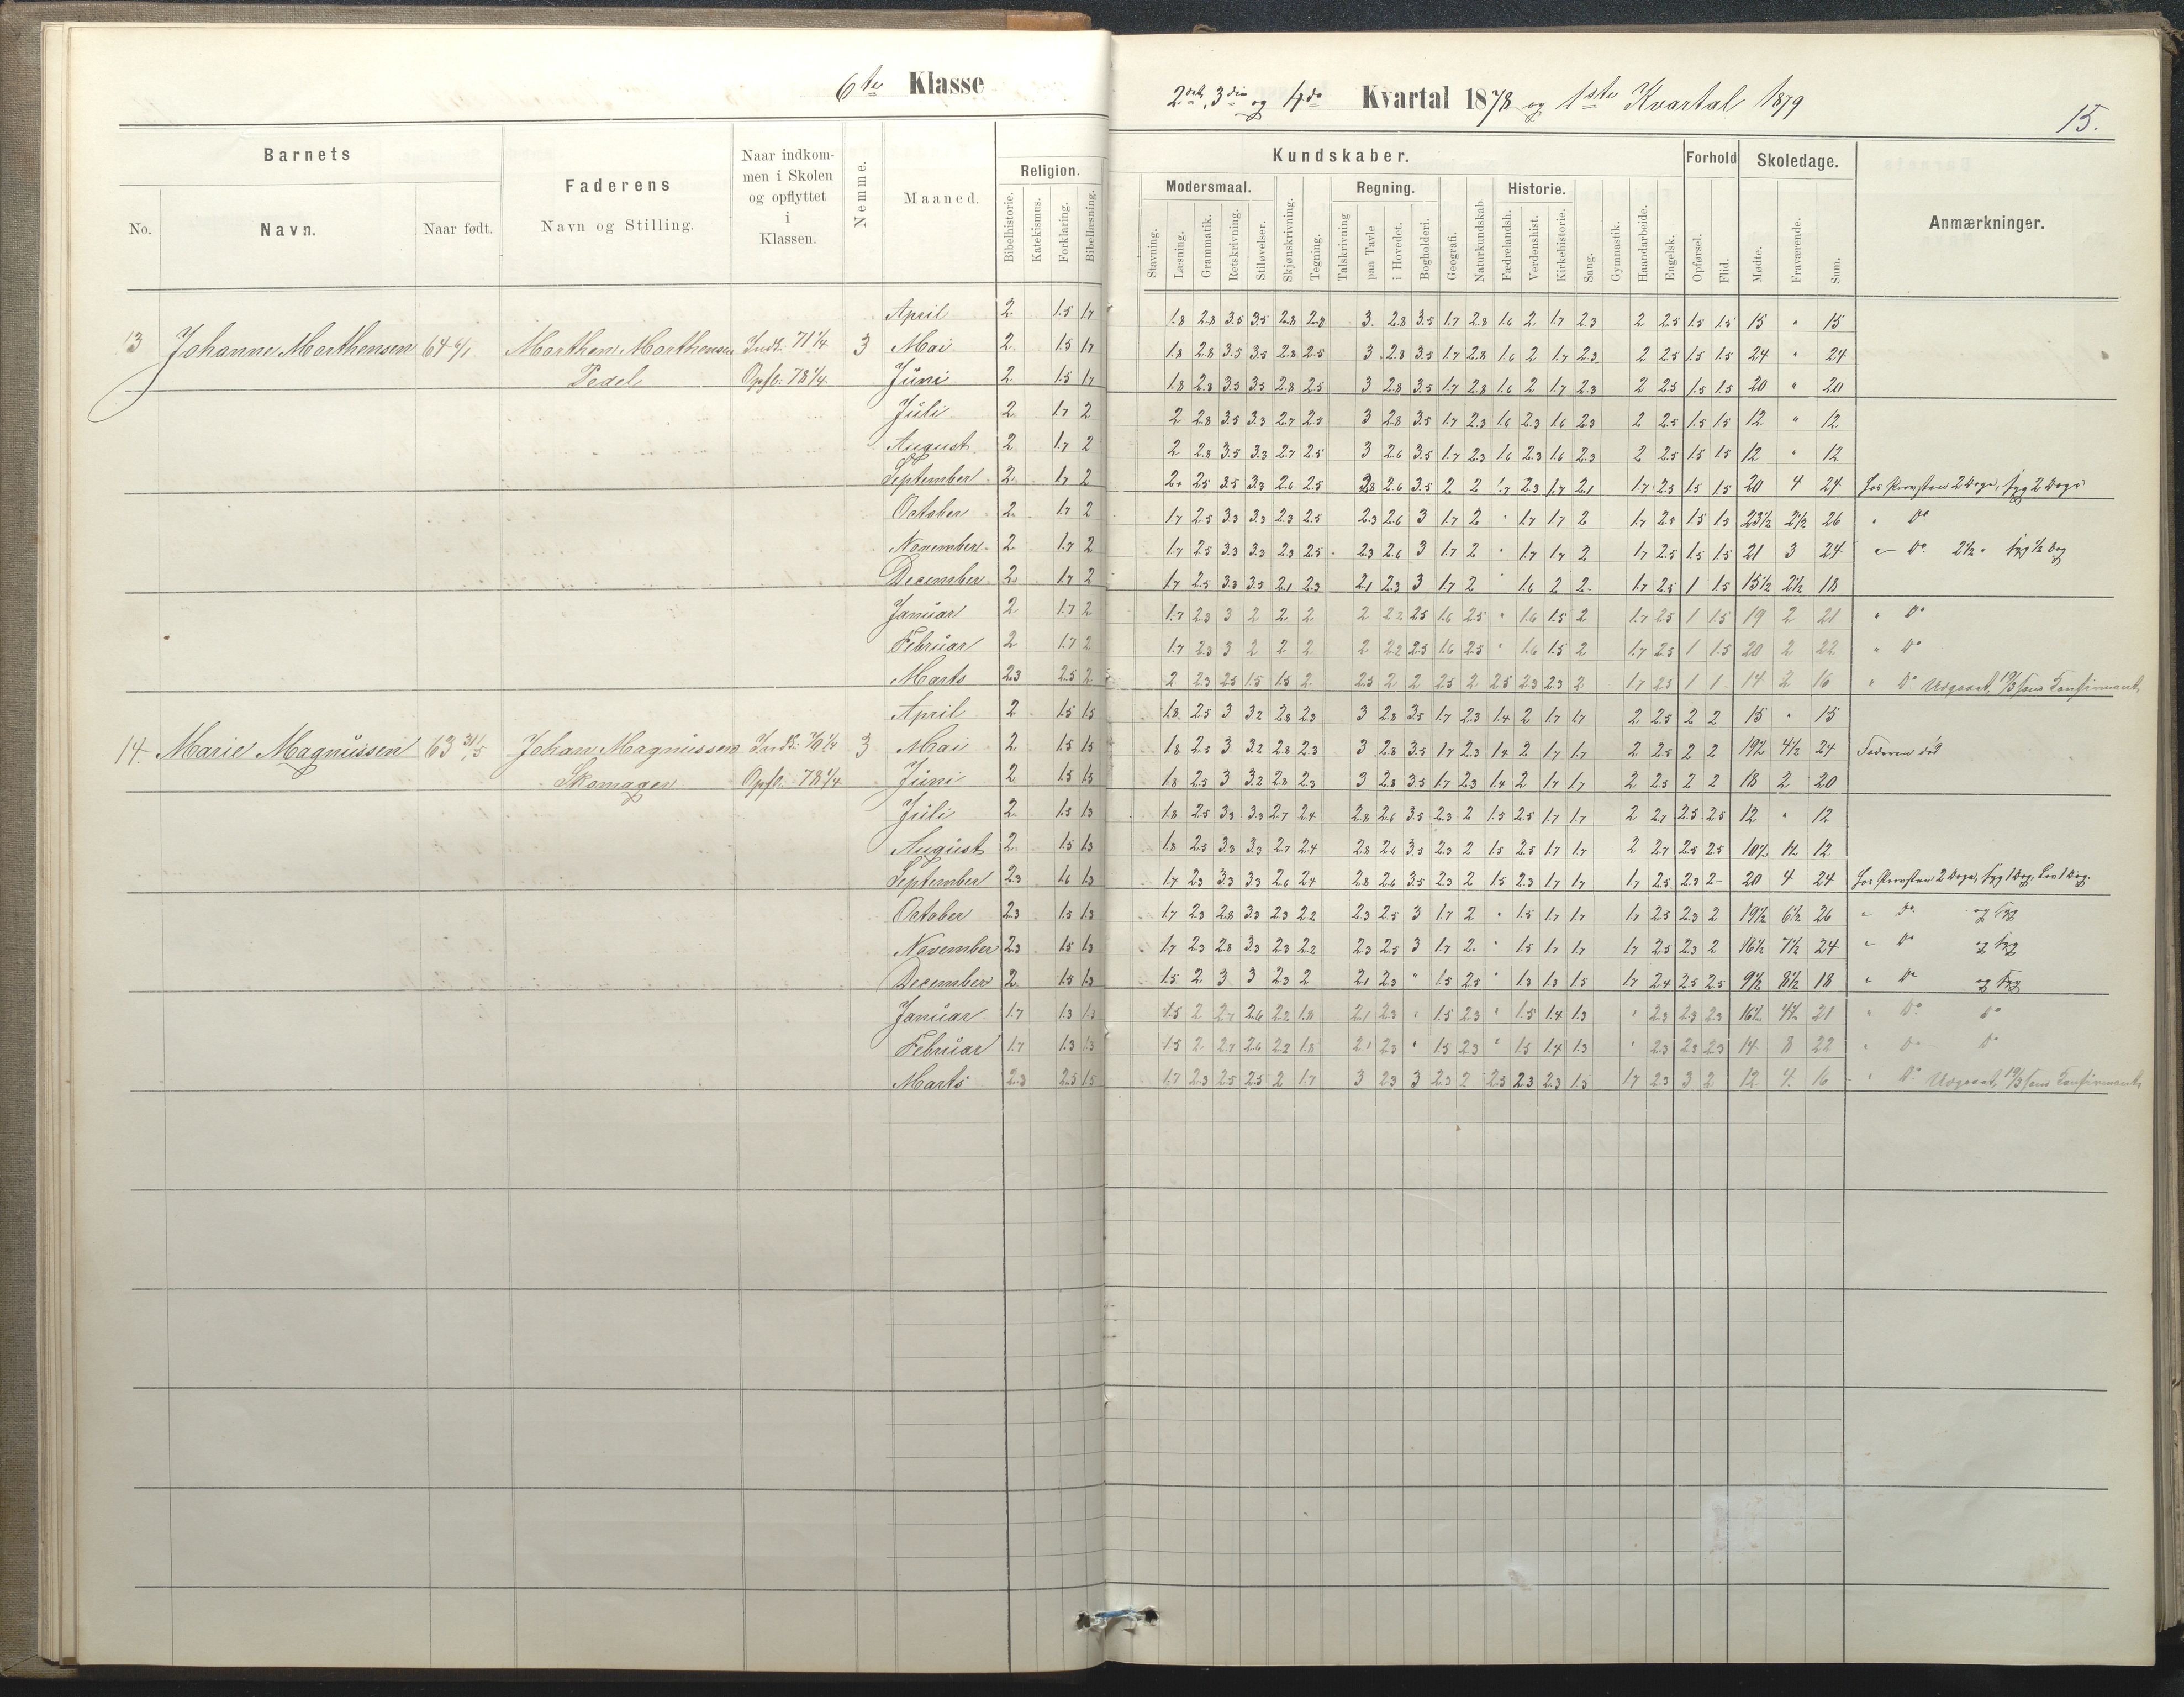 6te Klasse
2det, 3die og 4de Kvartal 1878 og 1ste Kvartal 1879
15.
Barnets
No. Navn. Naar født.
Faderens
Navn og Stilling.
Naar indkom-
men i Skolen
og opflyttet
i
Klassen.
Nemme.
Maaned.
Religion.
Bibelhistorie. Katekismus. Forklaring. Bibellæsning.
Kundskaber.
Modersmaal. Regning. Historie.
Stavning. Læsning. Grammatik. Retskrivning. Stiløvelser. Skjønskrivning. Tegning. Talskrivning paa Tavle i Hovedet. Bogholderi. Geografi. Naturkundskab Fædrelandsh. Verdenshist. Kirkehistorie. Sang. Gymnastik. Haandarbeide. Engelsk.
Forhold
Opførsel. Flid.
Skoledage.
Mødte. Fraværende. Sum.
Anmærkninger.
April 2. 1.5 1.7 1.8 2.8 3.5 3.5 2.8 2.8 3. 2.8 3.5 1.7 2.8 1.6 2 1.7 2.3 2 2.5 1.5 1.5 15 " 15
13 Johanne Marthensen 64 6/1 Marthen Marthensen Indk. 71 1/4 3 Mai 2. 1.5 1.7 1.8 2.8 3.5 3.5 2.8 2.5 3. 2.8 3.5 1.7 2.8 1.6 2 1.7 2.3 2 2.5 1.5 1.5 24 " 24
Pedel Opfl: 78 1/4 Juni 2. 1.5 1.7 1.8 2.8 3.5 3.5 2.8 2.5 3 2.8 3.5 1.7 2.8 1.6 2 1.7 2.3 2 2.5 1.5 1.5 20 " 20
Juli 2. 1.7 2 2 2.8 3.5 3.3 2.7 2.5 3 2.8 3.5 1.7 2.3 1.6 2.3 1.6 2.3 2 2.5 1.5 1.5 12 " 12
August 2. 1.7 2 2 2.8 3.5 3.3 2.7 2.5 3 2.6 3.5 1.7 2.3 1.6 2.3 1.6 2.3 2 2.5 1.5 1.5 12 " 12
September 2. 1.7 2 2+ 2.5 3.5 3.3 2.6 2.5 2.8 2.6 3.5 2 2 1.7 2.3 1.7 2.1 1.7 2.5 1.5 1.5 20 4 24 hos Provsten 2 Dage, syg 2 Dage
October 2. 1.7 2 1.7 2.5 3.3 3.3 2.3 2.5 2.3 2.6 3 1.7 2 " 1.7 1.7 2 1.7 2.5 1.5 1.5 23 1/2 2 1/2 26 " Do
November 2 1.7 2 1.7 2.5 3.3 3.3 2.3 2.5 2.3 2.6 3 1.7 2 " 1.7 1.7 2 1.7 2.5 1.5 1.5 21 3 24 " Do 2 1/2 " syg 1/2 Dag
December 2 1.7 2 1.7 2.5 3.3 3.3 2.1 2.3 2.1 2.3 3 1.7 2 " 1.6 2 2. 1.7 2.5 1 1.5 15 1/2 2 1/2 18
Januar 2 1.7 2 1.7 2.3 3 2 2 2 2 2.2 2.5 1.6 2.5 " 1.6 1.5 2 1.7 2.5 1 1.5 19 2 21 " Do
Februar 2 1.7 2 1.7 2.3 3 2 2 2 2 2.2 2.5 1.6 2.5 " 1.6 1.5 2 1.7 2.5 1 1.5 20 2 22 " Do
Marts 2.3 2.5 2 2 2.3 2.5 1.5 1.5 2 2.5 2 2 2.5 2 2.5 2.3 2.3 2 1.7 2.3 1 1. 14 2 16 " Do Udgaaet 19/3 som Confirmant
April 2 1.5 1.5 1.8 2.5 3 3.2 2.8 2.3 3 2.8 3.5 1.7 2.3 1.4 2 1.7 1.7 2 2.5 2 2 15 " 15
14. Marie Magnussen 63 31/5 Johan Magnussen Indk: 70 1/4 3 Mai 2. 1.5 1.5 1.8 2.5 3 3.2 2.8 2.3 3 2.8 3.5 1.7 2.3 1.4 2 1.7 1.7 2 2.5 2 2 19 1/2 4 1/2 24 Faderen død
Skomager Opfl: 78 1/4 Juni 2 1.5 1.5 1.8 2.5 3 3.2 2.8 2.3 3 2.8 3.5 1.7 2.3 1.4 2 1.7 1.7 2 2.5 2 2 18 2 20
Juli 2. 1.5 1.3 1.8 2.5 3.3 3.3 2.7 2.4 2.8 2.6 3.5 2.3 2 1.5 2.5 1.7 1.7 2 2.7 2.5 2.5 12 " 12
August 2. 1.5 1.3 1.8 2.5 3.3 3.3 2.7 2.4 2.8 2.6 3.5 2.3 2 1.5 2.5 1.7 1.7 2 2.7 2.5 2.5 10 1/2 1 1/2 12
September 2.3 1.6 1.3 1.7 2.3 3.3 3.3 2.6 2.4 2.8 2.6 3.5 2.3 2 1.5 2.3 1.7 1.7 1.7 2.5 2.3 2- 20 4 24 hos Provsten 2 Dage, syg 1 Dag, Lov 1 Dag.
October 2.3 1.5 1.3 1.7 2.3 2.8 3.3 2.3 2.2 2.3 2.5 3 1.7 2 " 1.5 1.7 1.7 1.7 2.5 2.3 2 19 1/2 6 1/2 26 " Do og syg
November 2.3 1.5 1.3 1.7 2.3 2.8 3.3 2.3 2.2 2.3 2.5 3 1.7 2. " 1.5 1.7 1.7 1.7 2.5 2.3 2 16 1/2 7 1/2 24 " Do og syg
December 2. 1.5 1.3 1.5 2 3 3 2.3 2 2.1 2.3 " 1.5 2.5 " 1.3 1.3 1.5 1.7 2.4 2.5 2.5 9 1/2 8 1/2 18 " Do og syg
Januar 1.7 1.3 1.3 1.5 2 2.7 2.6 2.2 1.8 2.1 2.3 " 1.5 2.3 " 1.5 1.4 1.3 " 2.3 2.3 2.3 16 1/2 4 1/2 21 " Do Do
Februar 1.7 1.3 1.3 1.5 2 2.7 2.6 2.2 1.8 2.1 2.3 " 1.5 2.3 " 1.5 1.4 1.3 " 2.3 2.3 2.3 14 8 22 " Do Do
Marts 2.3 2.5 1.5 1.7 2.3 2.5 2.5 2 1.7 3 2.3 3 2.3 2 2.5 2.3 2.3 1.5 1.7 2.3 3 2 12 4 16 " Do Udgaaet 19/3 som Confirmant